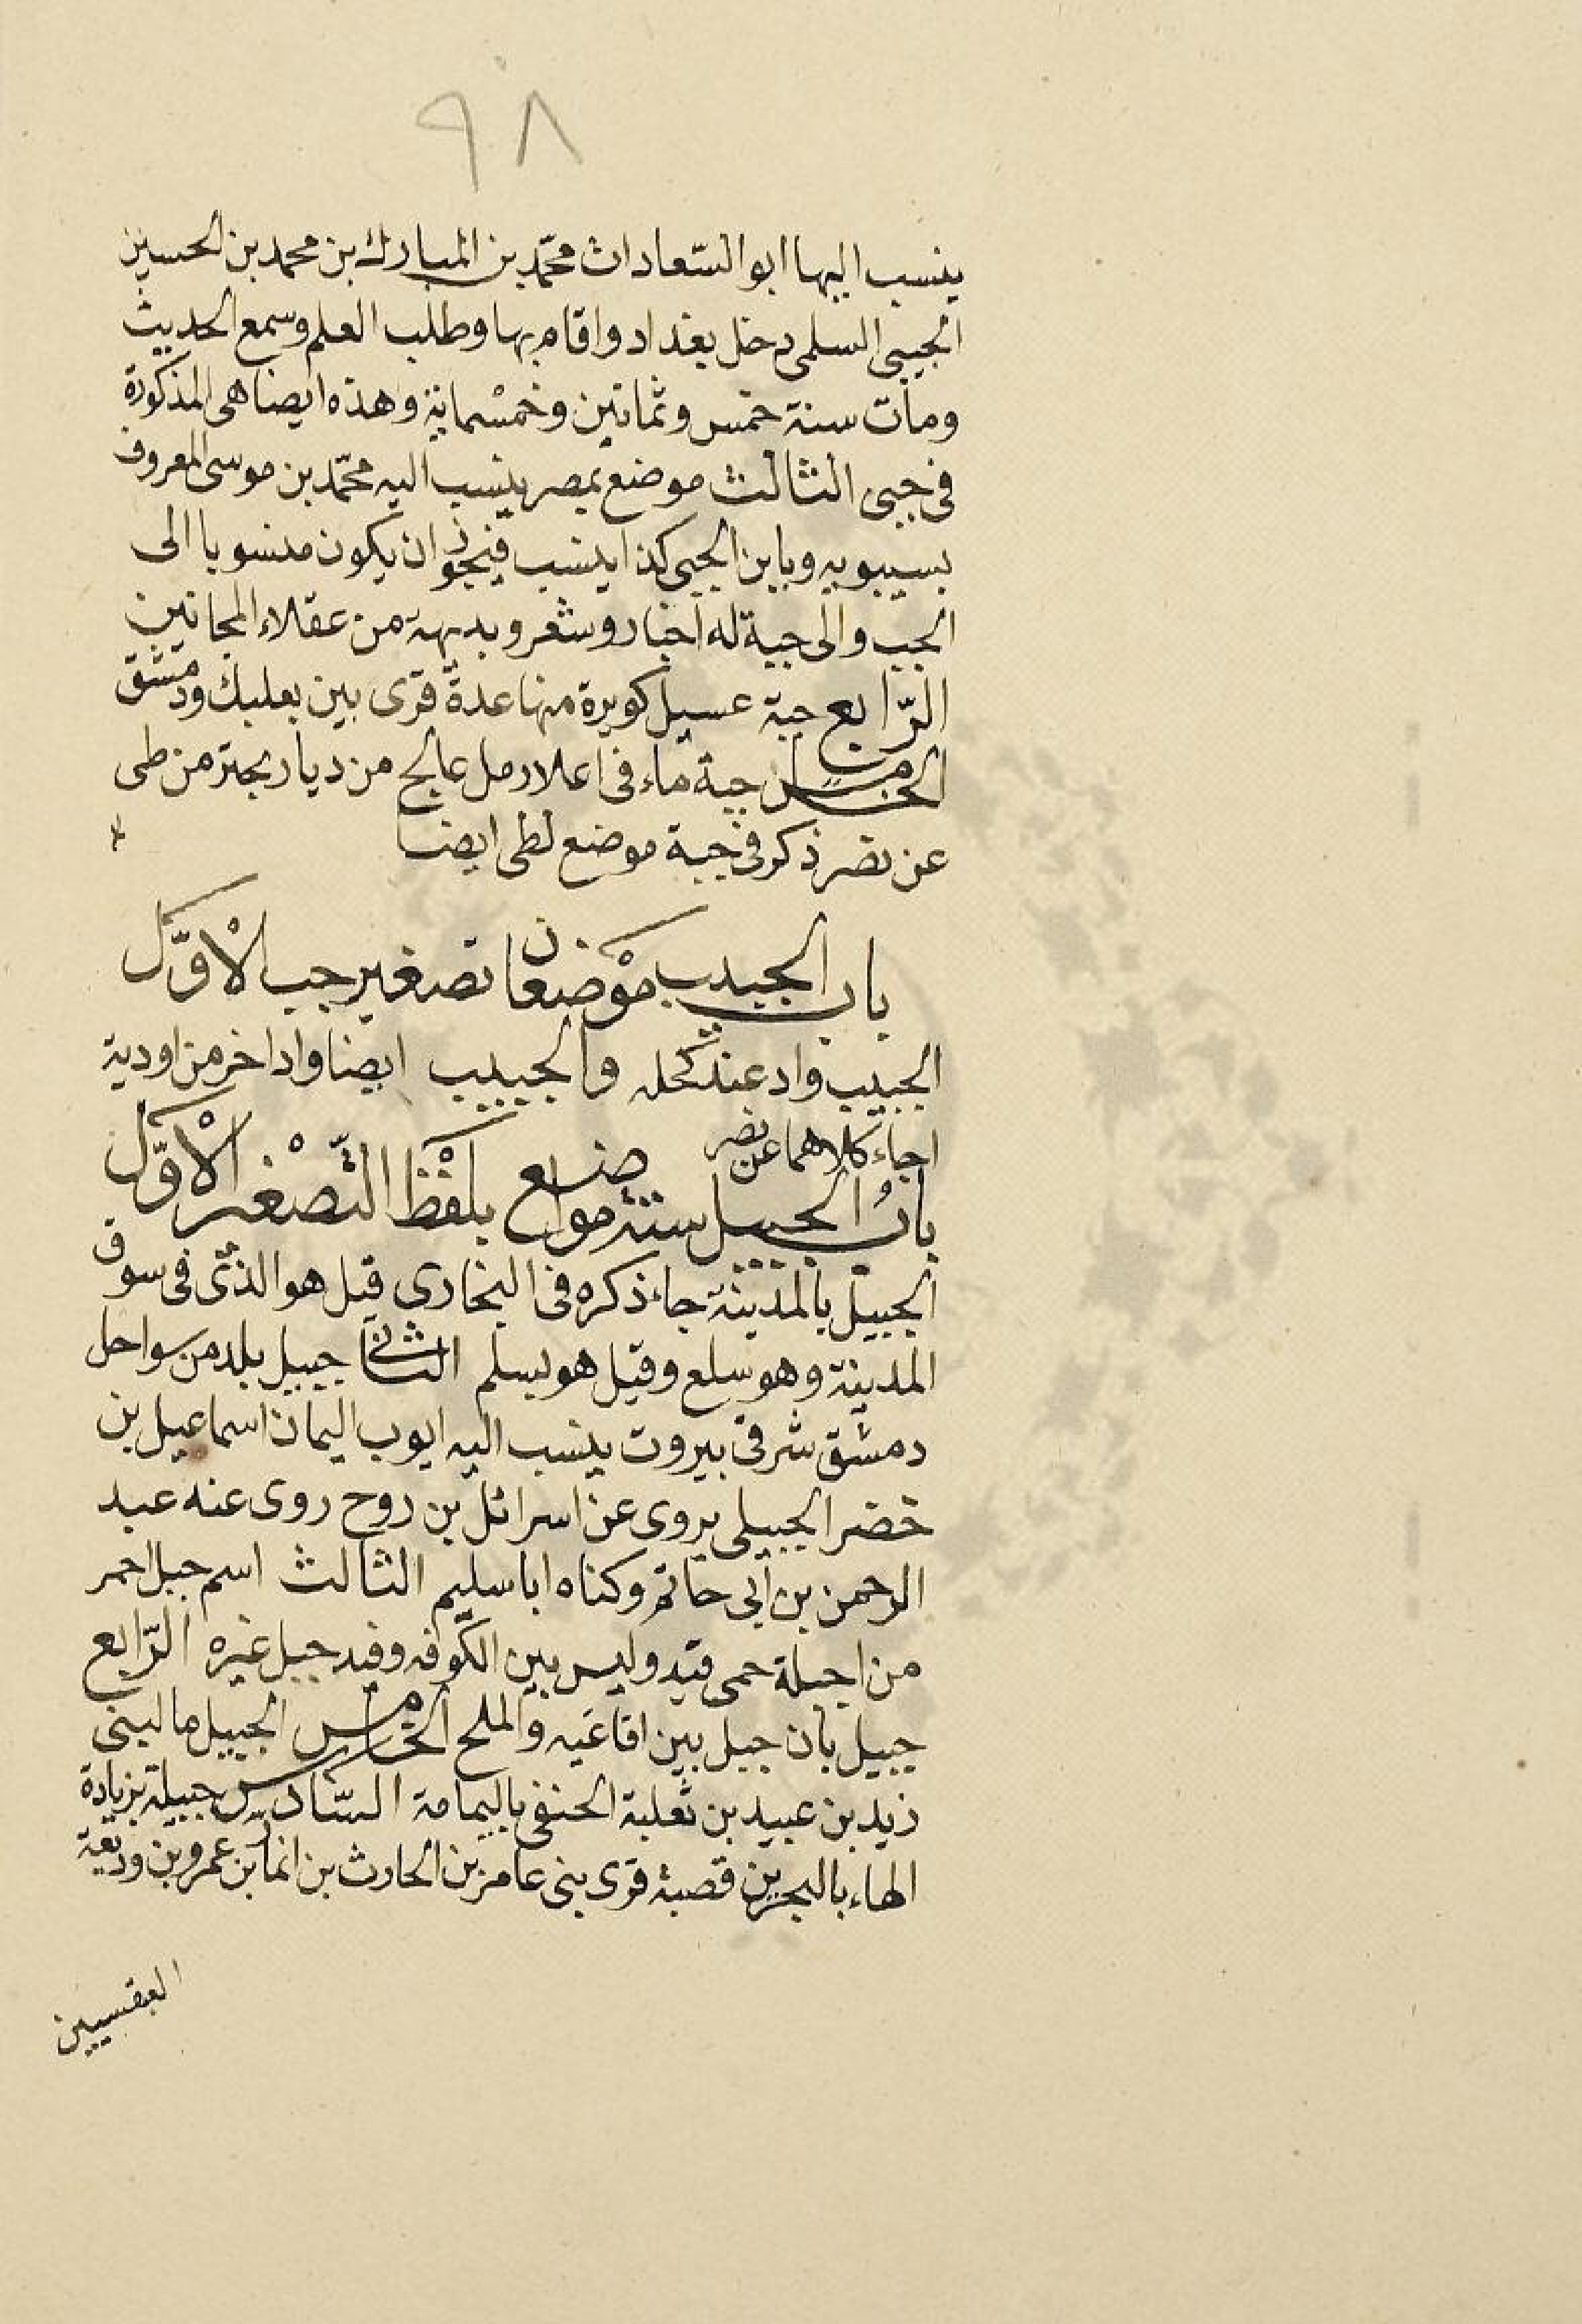 ٩٨
ينسب اليها ابو السّعادات محمّد بن المبارك بن محمد بن الحسين
الجبى السلمى دخل بغداد واقام بها وطلب العلم وسمع الحديث
ومات سنة خمس وثمانين وخمسماية وهذه ايضا هى المذكورة
فى جبى الثالث موضع بمصر ينسب اليه محمّد بن موسى المعروف
بسيبويه وبابن الجبى كذا ينسب فيجوز ان يكون منسوبا الى
الجب والى جبة له اخبار وشعر وبديهة من عقلاء المجانين
الرّابع جبة عسيل كويرة منها عدة قرى بين بعلبك ودمشق
الخامس جبة ماء فى اعلا رمل عالج من ديار بحتر من طى
عن نصر ذكر فى جبة موضع لطى ايضا
باب الجبيب موْضعان تصغير جب الاْوّل
الجبيب واد عند كحله والجبيب ايضا واد اخر من اودية
اجاء كلاهما عن نصر
بابُ الجبيل ستة مواضع بلفْظ التّصْغير الاْوّل
الجبيل بالمدينة جاء ذكره فى البخارى قيل هو الذى فى سوق
المدينة وهو سلع وقيل هو بسلم الثانى جبيل بلد من سواحل
دمشق شرقى بيروت ينسب اليه ايوب اليمان اسماعيل بن
خضر الجبيلى يروى عن اسرائل بن روح روى عنه عبد
الرحمن بن ابى حاتم وكناه ابا سليم الثالث اسم جبل احمر
من اجبلة حمى فيد وليس بين الكوفه وفيد جبل غيره الرّابع
جبيل بان جبل بين افاعيه والملح الخامس الجبيل ما لبنى
زيد بن عبيد بن ثعلبة الحنفى باليمامة السّادس جبيلة بزيادة
الهاء بالبحرين قصبة قرى بنى عامر بن الحارث بن انمار بن عمرو بن وديعة
العبقسيين